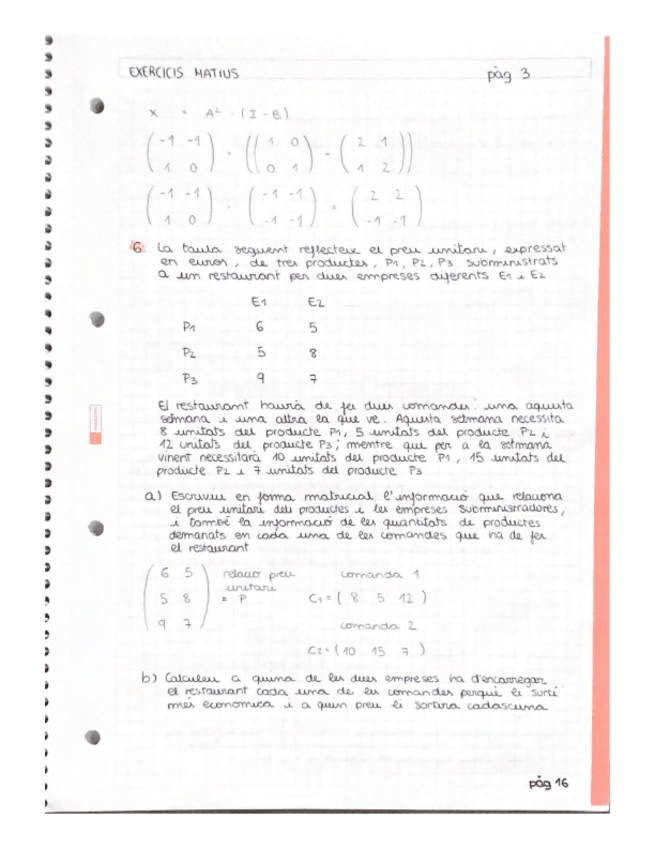 EXERCICIS MATIUS pàg 3
X = A² · (I - B)
( -1 -1 ) · (( 1 0 ) - ( 2 1 ))
( 1 0 ) (( 0 1 ) ( 1 2 ))
( -1 -1 ) · ( -1 -1 ) = ( 2 2 )
( 1 0 ) ( -1 -1 ) ( -1 -1 )
6. La taula seguent reflecteix el preu unitari, expressat
en euros, de tres productes, P1, P2, P3 subministrats
a un restaurant per dues empreses diferents E1 i E2
E1 E2
P1 6 5
P2 5 8
P3 9 7
El restaurant haurà de fer dues comandes: una aquesta
setmana i una altra la que ve. Aquesta setmana necessita
8 unitats del producte P1, 5 unitats del producte P2 i
12 unitats del producte P3; mentre que per a la setmana
vinent necessitarà 10 unitats del producte P1, 15 unitats del
producte P2 i 7 unitats del producte P3
a) Escriviu en forma matricial l'informació que relaciona
el preu unitari dels productes i les empreses subministradores,
i també la informació de les quantitats de productes
demanats en cada una de les comandes que ha de fer
el restaurant
( 6 5 ) relacio preu comanda 1
( 5 8 ) unitari = P C1 = ( 8 5 12 )
( 9 7 ) comanda 2
C2 = ( 10 15 7 )
b) Calculeu a quina de les dues empreses ha d'encarregar
el restaurant cada una de les comandes perquè li surti
més economica i a quin preu li sortira cadascuna
pàg 16